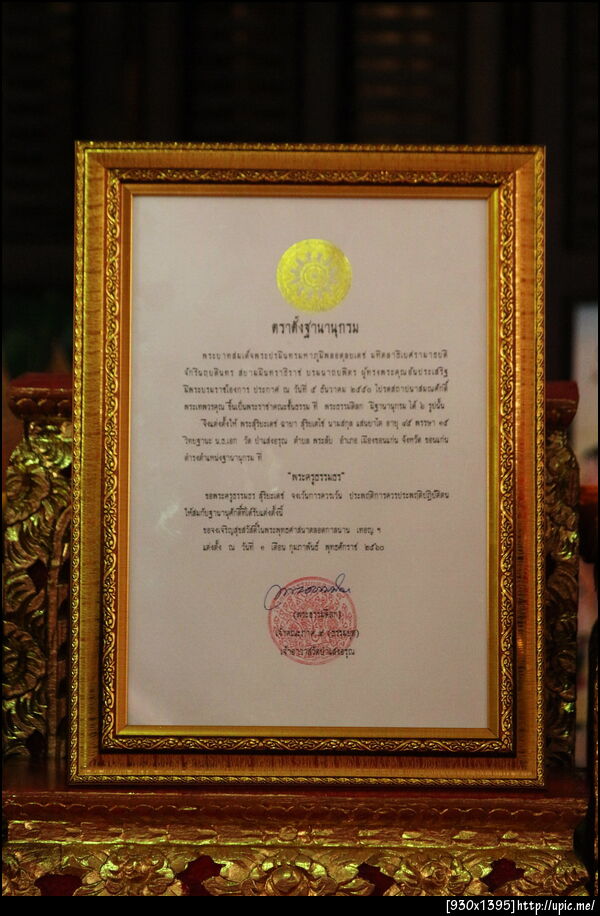 ตราตั้งฐานานุกรม
พระบาทสมเด็จพระปรมินทรมหาภูมิพลอดุลยเดช มหิตลาธิเบศรามาธบดี
จักรีนฤบดินทร สยามมินทราธิราช บรมนาถบพิตร ผู้ทรงพระคุณอันประเสริฐ
มีพระบรมราชโองการ ประกาศ ณ วันที่ ๕ ธันวาคม ๒๕๕๐ โปรดสถาปนาสมณศักดิ์
พระเทพวรคุณ ขึ้นเป็นพระราชาคณะชั้นธรรม ที่ พระธรรมดิลก มีฐานานุกรม ได้ ๖ รูปนั้น
จึงแต่งตั้งให้ พระสุริยะเดช ฉายา สุริยเตโช นามสกุล แสนยาโต อายุ ๔๕ พรรษา ๑๕
วิทยฐานะ น.ธ.เอก วัด ป่าแสงอรุณ ตำบล พระลับ อำเภอ เมืองขอนแก่น จังหวัด ขอนแก่น
ดำรงตำแหน่งฐานานุกรม ที่
"พระครูธรรมธร"
ขอพระครูธรรมธร สุริยะเดช จงเว้นการควรเว้น ประพฤติการควรประพฤติปฏิบัติตน
ให้สมกับฐานานุศักดิ์ที่ได้รับแต่งตั้งนี้
ขอจงเจริญสุขสวัสดิ์ในพระพุทธศาสนาตลอดกาลนาน เทอญ ฯ
แต่งตั้ง ณ วันที่ ๑ เดือน กุมภาพันธ์ พุทธศักราช ๒๕๖๐
(พระธรรมดิลก)
เจ้าคณะภาค ๙ (ธรรมยุต)
เจ้าอาวาสวัดป่าแสงอรุณ
[930x1395]http://upic.me/